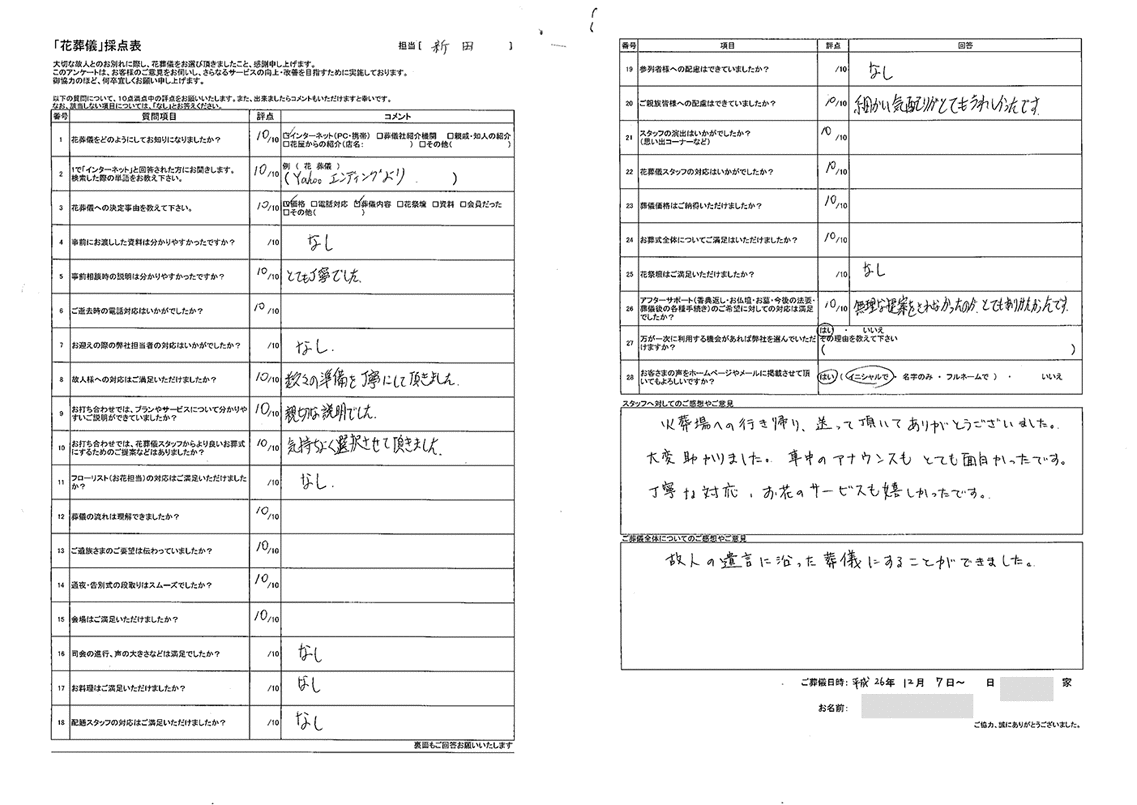 「花葬儀」採点表
担当[ 新田 ]
大切な故人とのお別れに際し、花葬儀をお選び頂きましたこと、感謝申し上げます。
このアンケートは、お客様のご意見をお伺いし、さらなるサービスの向上・改善を目指すために実施しております。
御協力のほど、何卒宜しくお願い申し上げます。
以下の質問について、10点満点中の評点をお願いいたします。また、出来ましたらコメントもいただけますと幸いです。
なお、該当しない項目については、「なし」とお答えください。
番号 質問項目 評点 コメント
1 花葬儀をどのようにしてお知りになりましたか? 10/10 ☑インターネット(PC・携帯) □葬儀社紹介機関 □親戚・知人の紹介
□花屋からの紹介(店名: ) □その他( )
2 1で「インターネット」と回答された方にお聞きします。
検索した際の単語をお教え下さい。 10/10 例 ( 花 葬儀 )
(Yahoo エンディングより )
3 花葬儀への決定事由を教えて下さい。 10/10 ☑価格 □電話対応 ☑葬儀内容 □花祭壇 □資料 □会員だった
□その他( )
4 事前にお渡しした資料は分かりやすかったですか? /10 なし
5 事前相談時の説明は分かりやすかったですか? 10/10 とても丁寧でした。
6 ご逝去時の電話対応はいかがでしたか? 10/10
7 お迎えの際の弊社担当者の対応はいかがでしたか? /10 なし.
8 故人様への対応はご満足いただけましたか? 10/10 数々の準備を丁寧にして頂きました.
9 お打ち合わせでは、プランやサービスについて分かりや
すいご説明ができていましたか? 10/10 親切な説明でした。
10 お打ち合わせでは、花葬儀スタッフからより良いお葬式
にするためのご提案などはありましたか? 10/10 気持ちよく選択させて頂きました.
11 フローリスト(お花担当)の対応はご満足いただけました
か? /10 なし.
12 葬儀の流れは理解できましたか? 10/10
13 ご遺族さまのご要望は伝わっていましたか? 10/10
14 通夜・告別式の段取りはスムーズでしたか? 10/10
15 会場はご満足いただけましたか? 10/10
16 司会の進行、声の大きさなどは満足でしたか? /10 なし
17 お料理はご満足いただけましたか? /10 なし
18 配膳スタッフの対応はご満足いただけましたか? /10 なし
裏面もご回答お願いいたします
番号 項目 評点 回答
19 参列者様への配慮はできていましたか? /10 なし
20 ご親族皆様への配慮はできていましたか? 10/10 細かい気配りがとてもうれしかったです。
21 スタッフの演出はいかがでしたか?
(思い出コーナーなど) 10/10
22 花葬儀スタッフの対応はいかがでしたか? 10/10
23 葬儀価格はご納得いただけましたか? 10/10
24 お葬式全体についてご満足はいただけましたか? 10/10
25 花祭壇はご満足いただけましたか? /10 なし
26 アフターサポート(香典返し・お仏壇・お墓・今後の法要・
葬儀後の各種手続き)のご希望に対しての対応は満足
でしたか? 10/10 無理な提案をされなかったのが、とてもありがたかったです。
27 万が一次に利用する機会があれば弊社を選んでいただ
けますか? はい ・ いいえ
その理由を教えて下さい
( )
28 お客さまの声をホームページやメールに掲載させて頂
いてもよろしいですか? はい ( イニシャルで ・ 名字のみ ・ フルネームで ) ・ いいえ
スタッフへ対してのご感想やご意見
火葬場への行き帰り、送って頂いてありがとうございました。
大変助かりました。車中のアナウンスも とても面白かったです。
丁寧な対応、お花のサービスも嬉しかったです。
ご葬儀全体についてのご感想やご意見
故人の遺言に沿った葬儀にすることができました。
ご葬儀日時: 平成 26年 12月 7日~ 日 家
お名前:
ご協力、誠にありがとうございました。